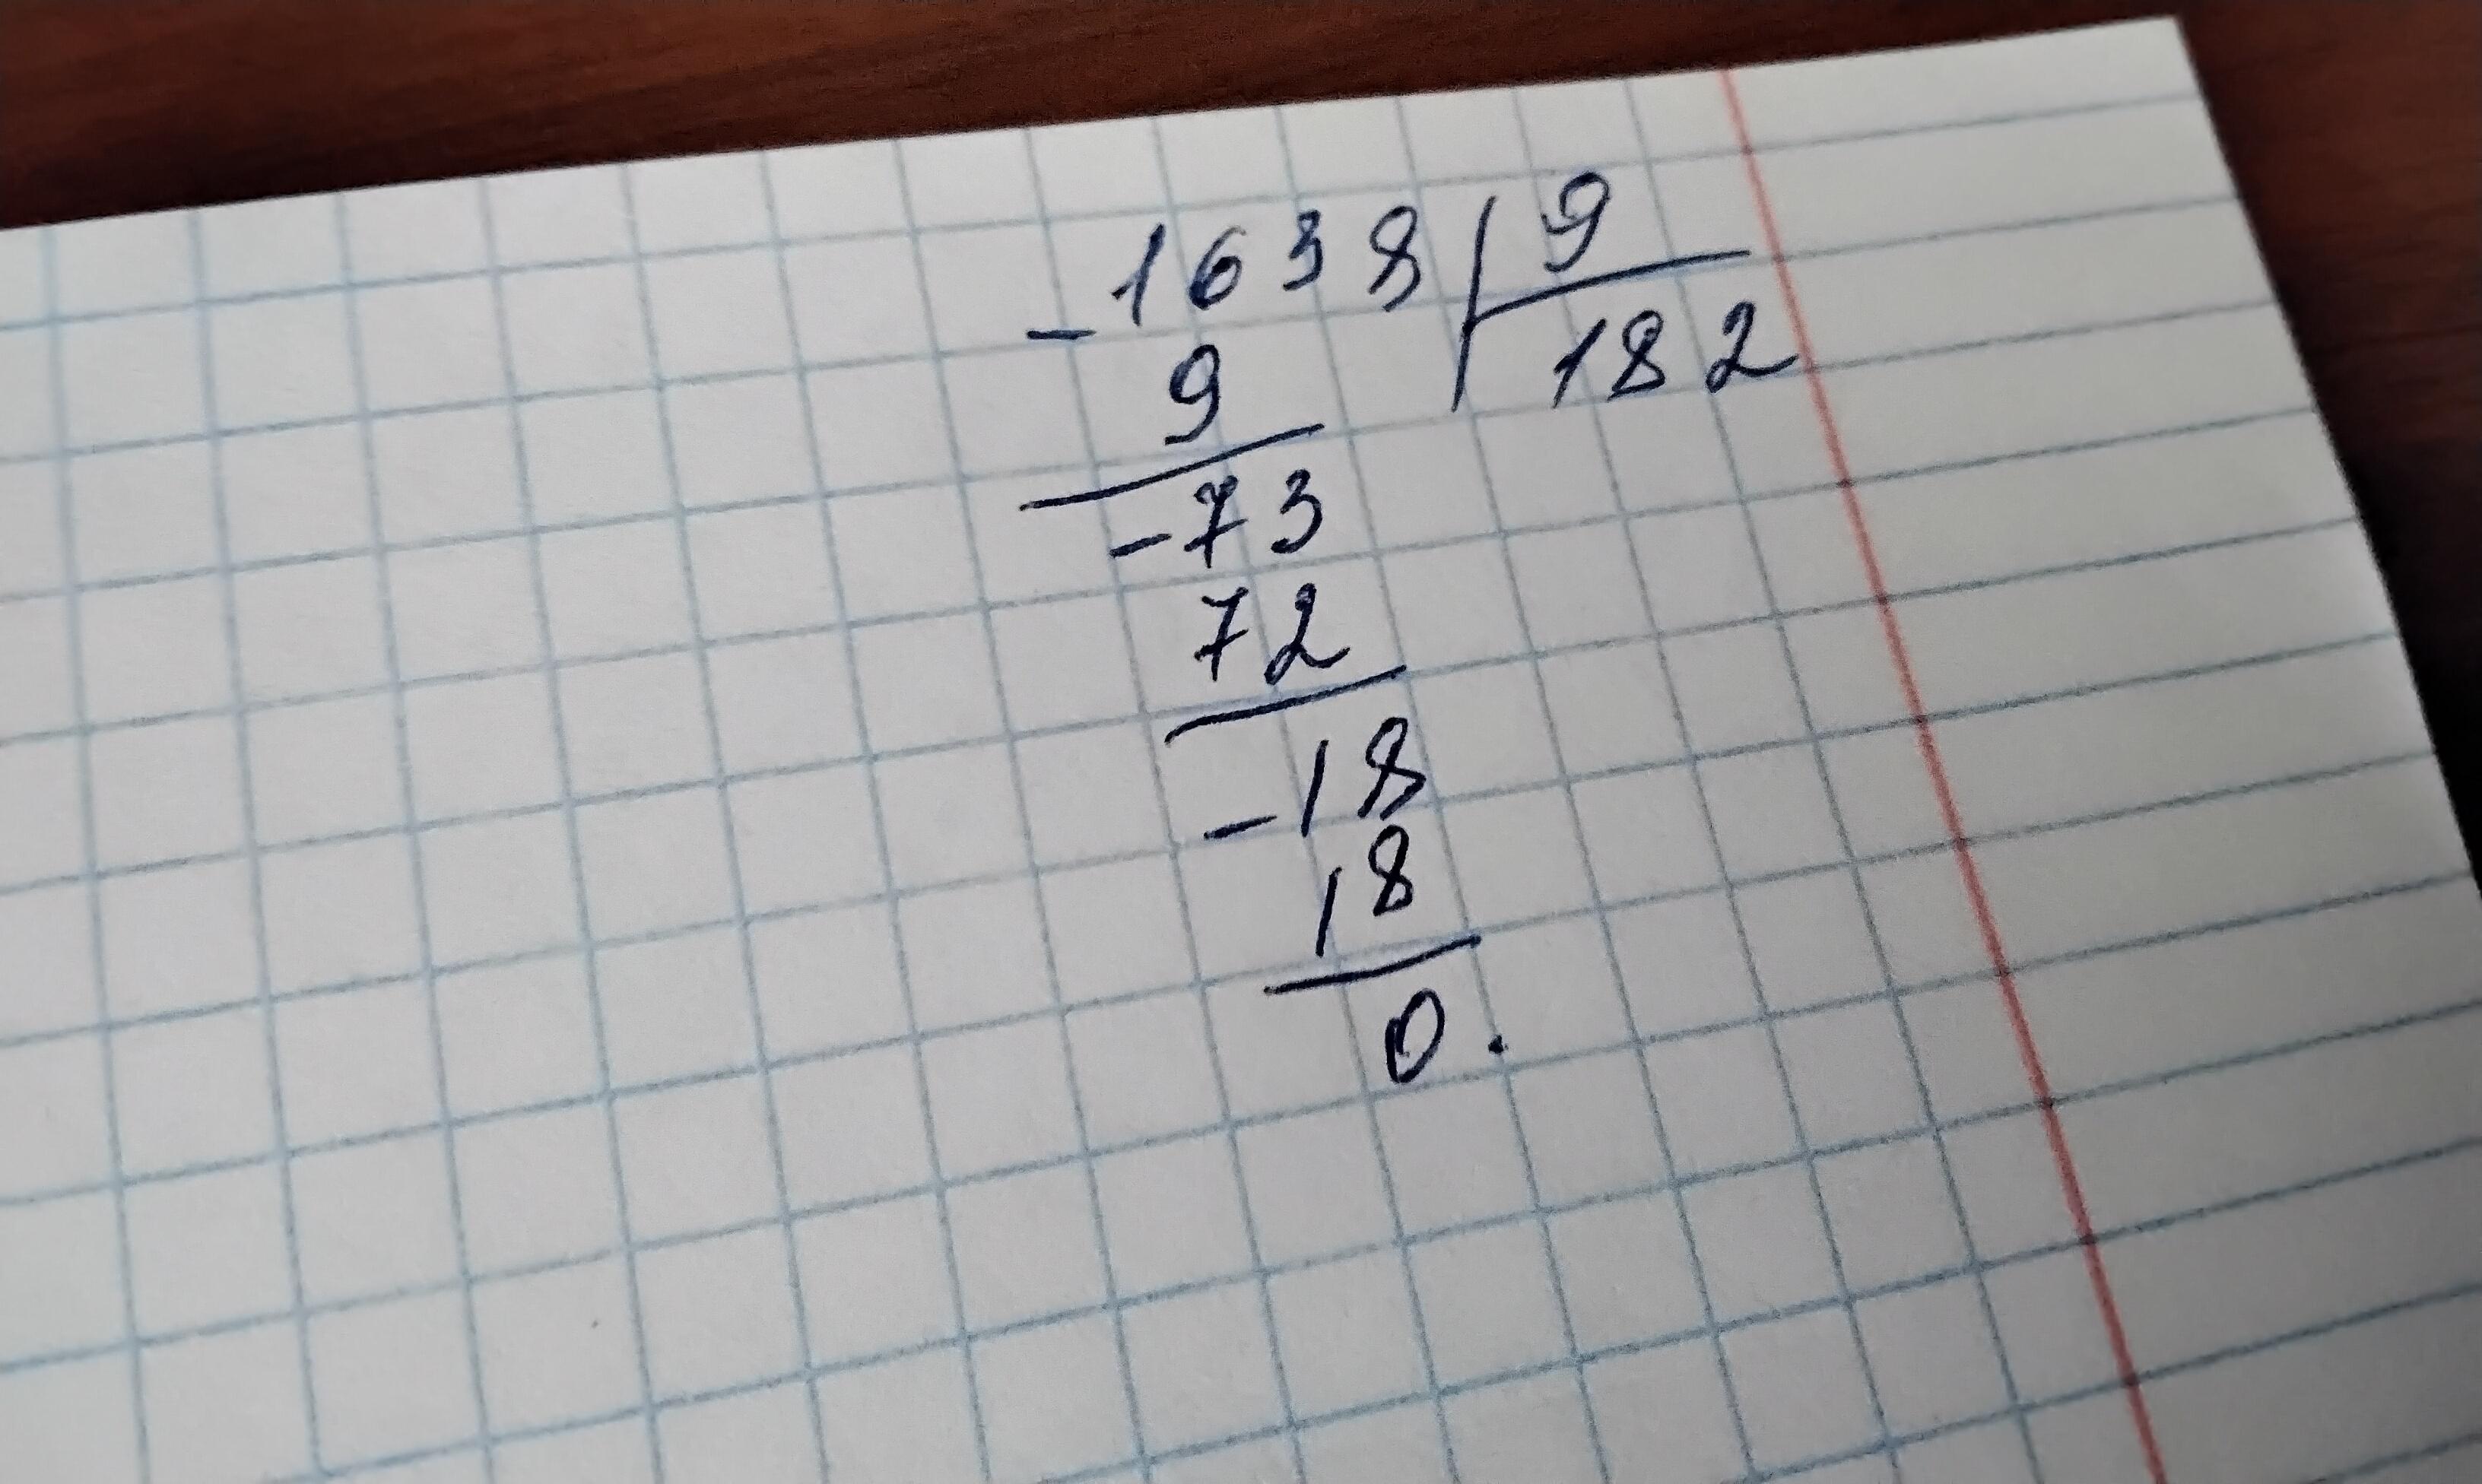 -1638 | 9
9 182
-73
72
-18
18
0.